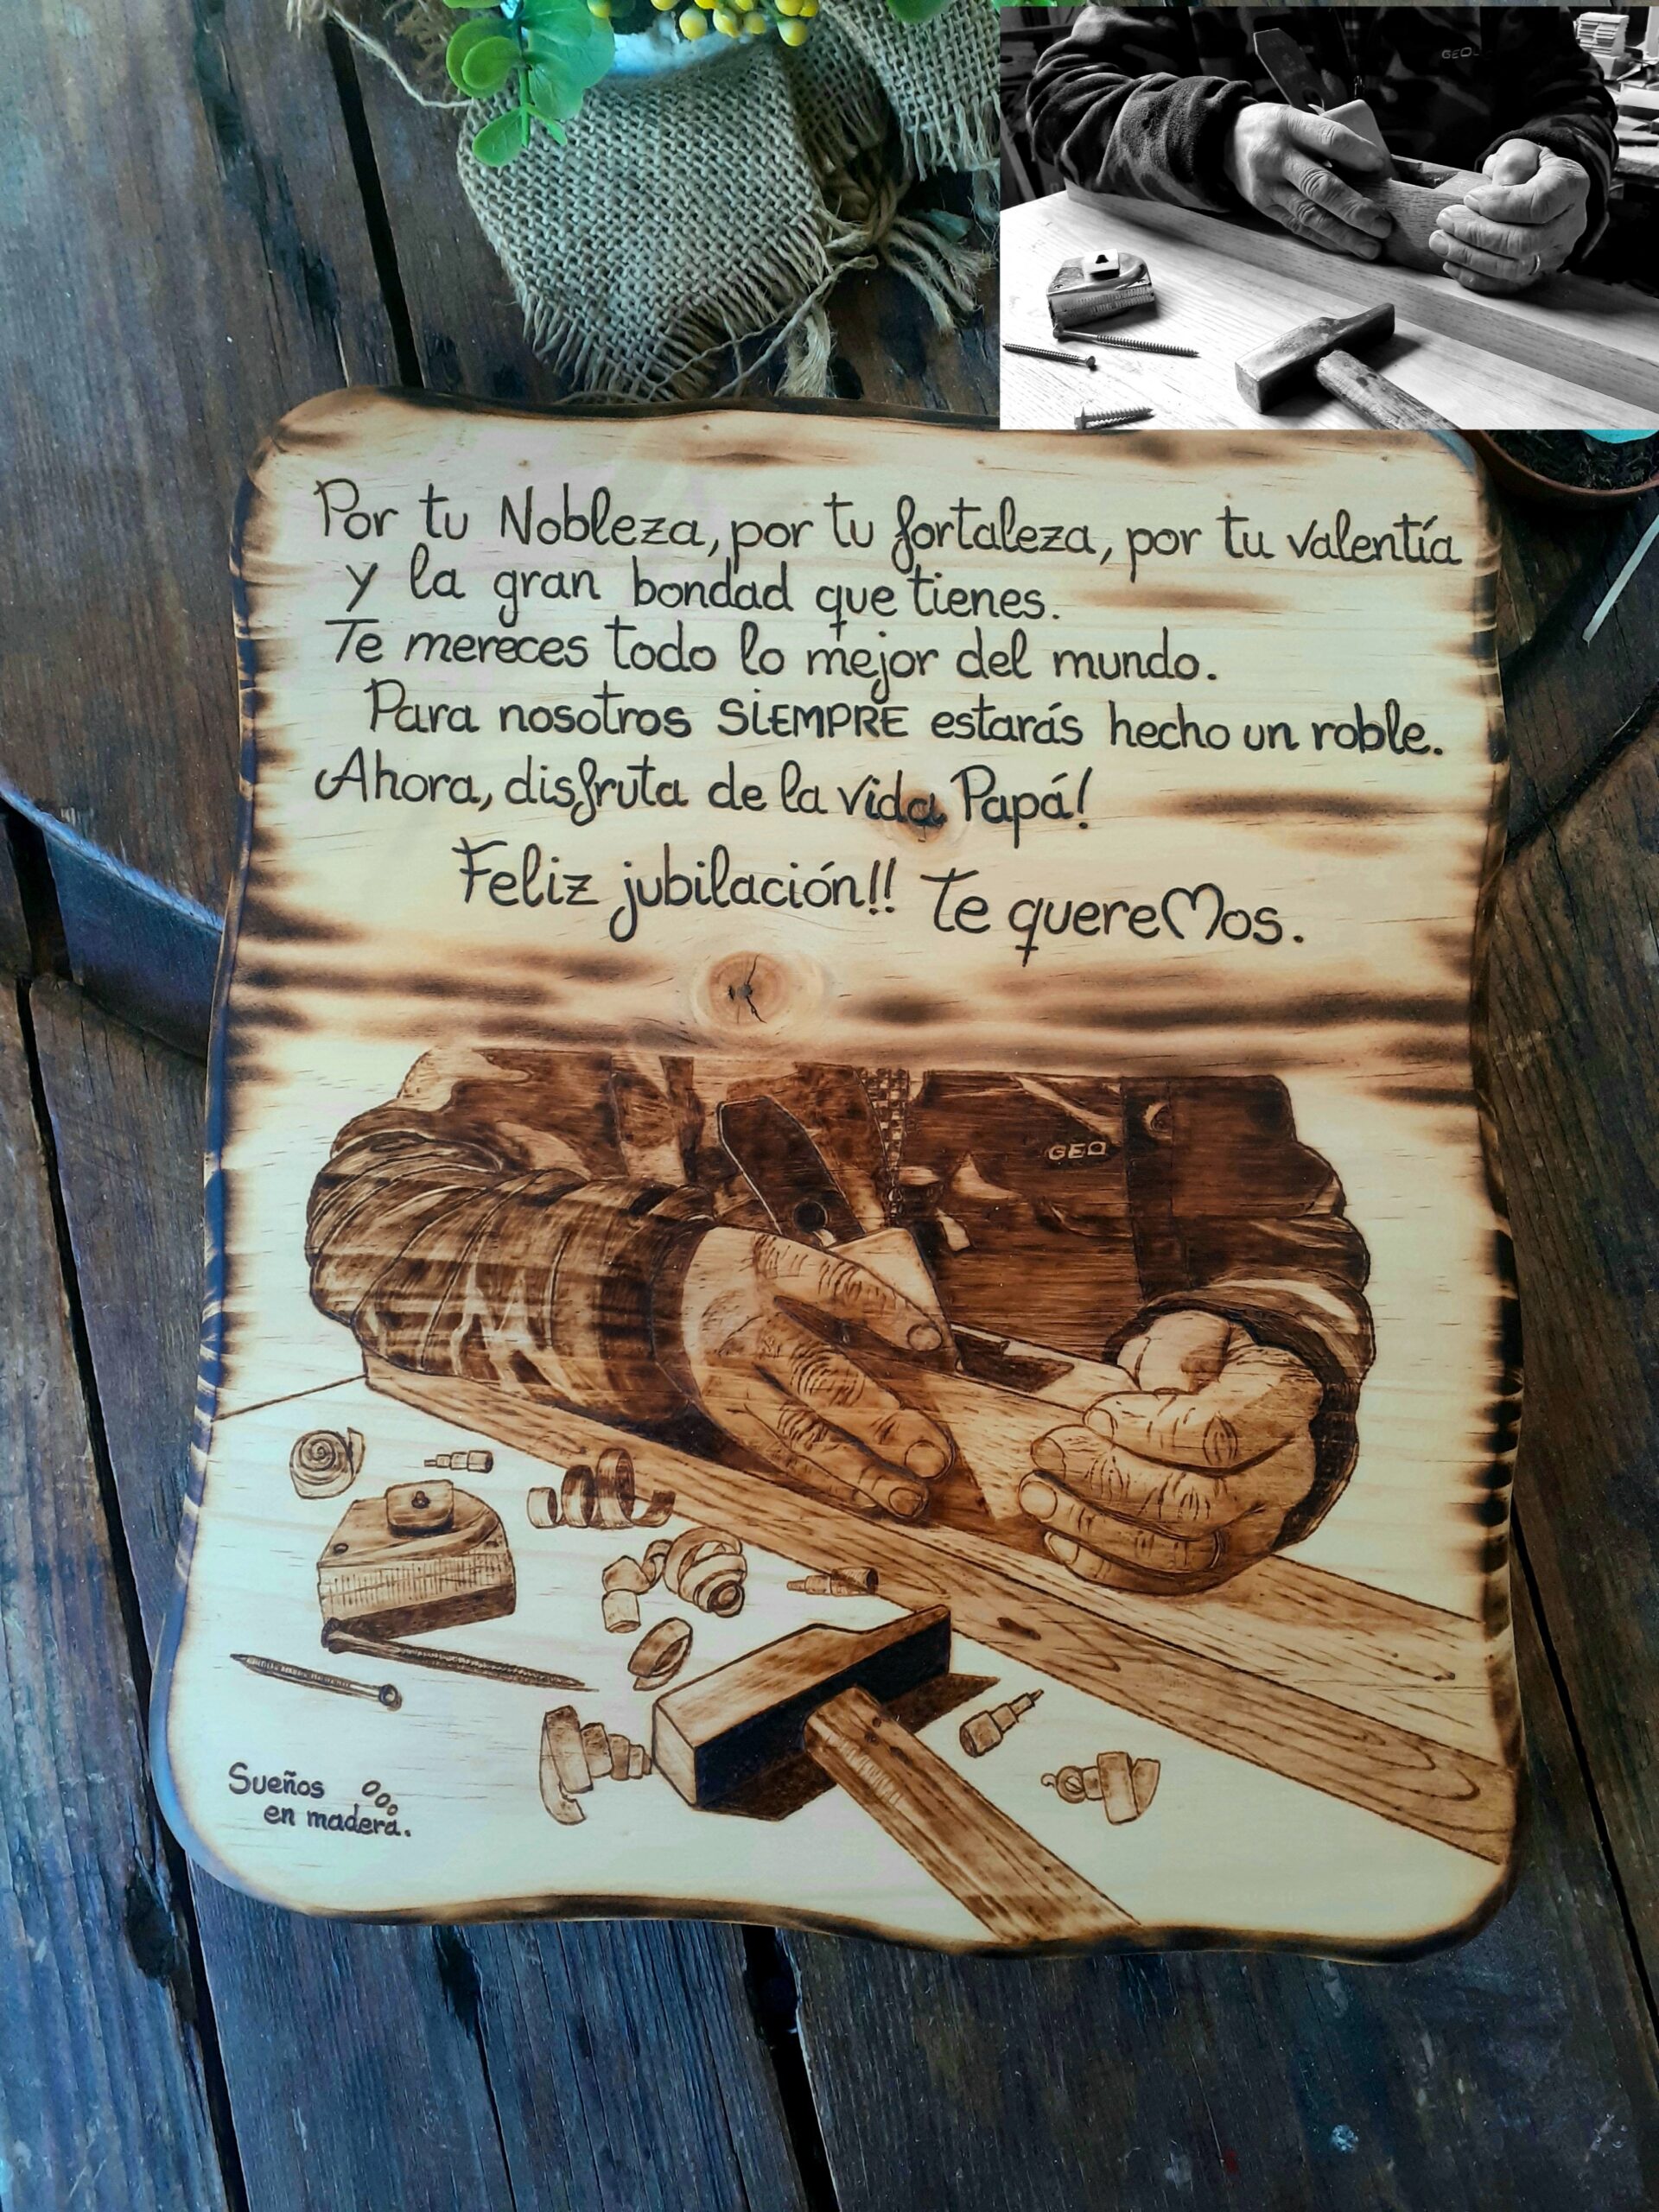 GEO
Por tu Nobleza, por tu fortaleza, por tu valentía
y la gran bondad que tienes.
Te mereces todo lo mejor del mundo.
Para nosotros SiEMPRE estarás hecho un roble.
Ahora, disfruta de la vida Papá!
Feliz jubilación!! Te quereMos.
GEO
Sueños
en madera.